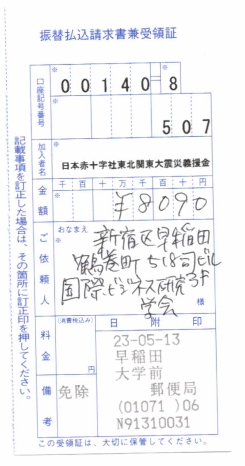 振替払込請求書兼受領証
口座記号番号
00140-8
507
加入者名
日本赤十字社東北関東大震災義援金
金額
千 百 十 万 千 百 十 円
¥8090
ご依頼人
おなまえ
新宿区早稲田
鶴巻町518司ビル
国際ビジネス研究3F
学会
様
料金
(消費税込み)
円
備考
免除
日附印
23-05-13
早稲田
大学前
郵便局
(01071)06
N91310031
記載事項を訂正した場合は、その箇所に訂正印を押してください。
この受領証は、大切に保管してください。